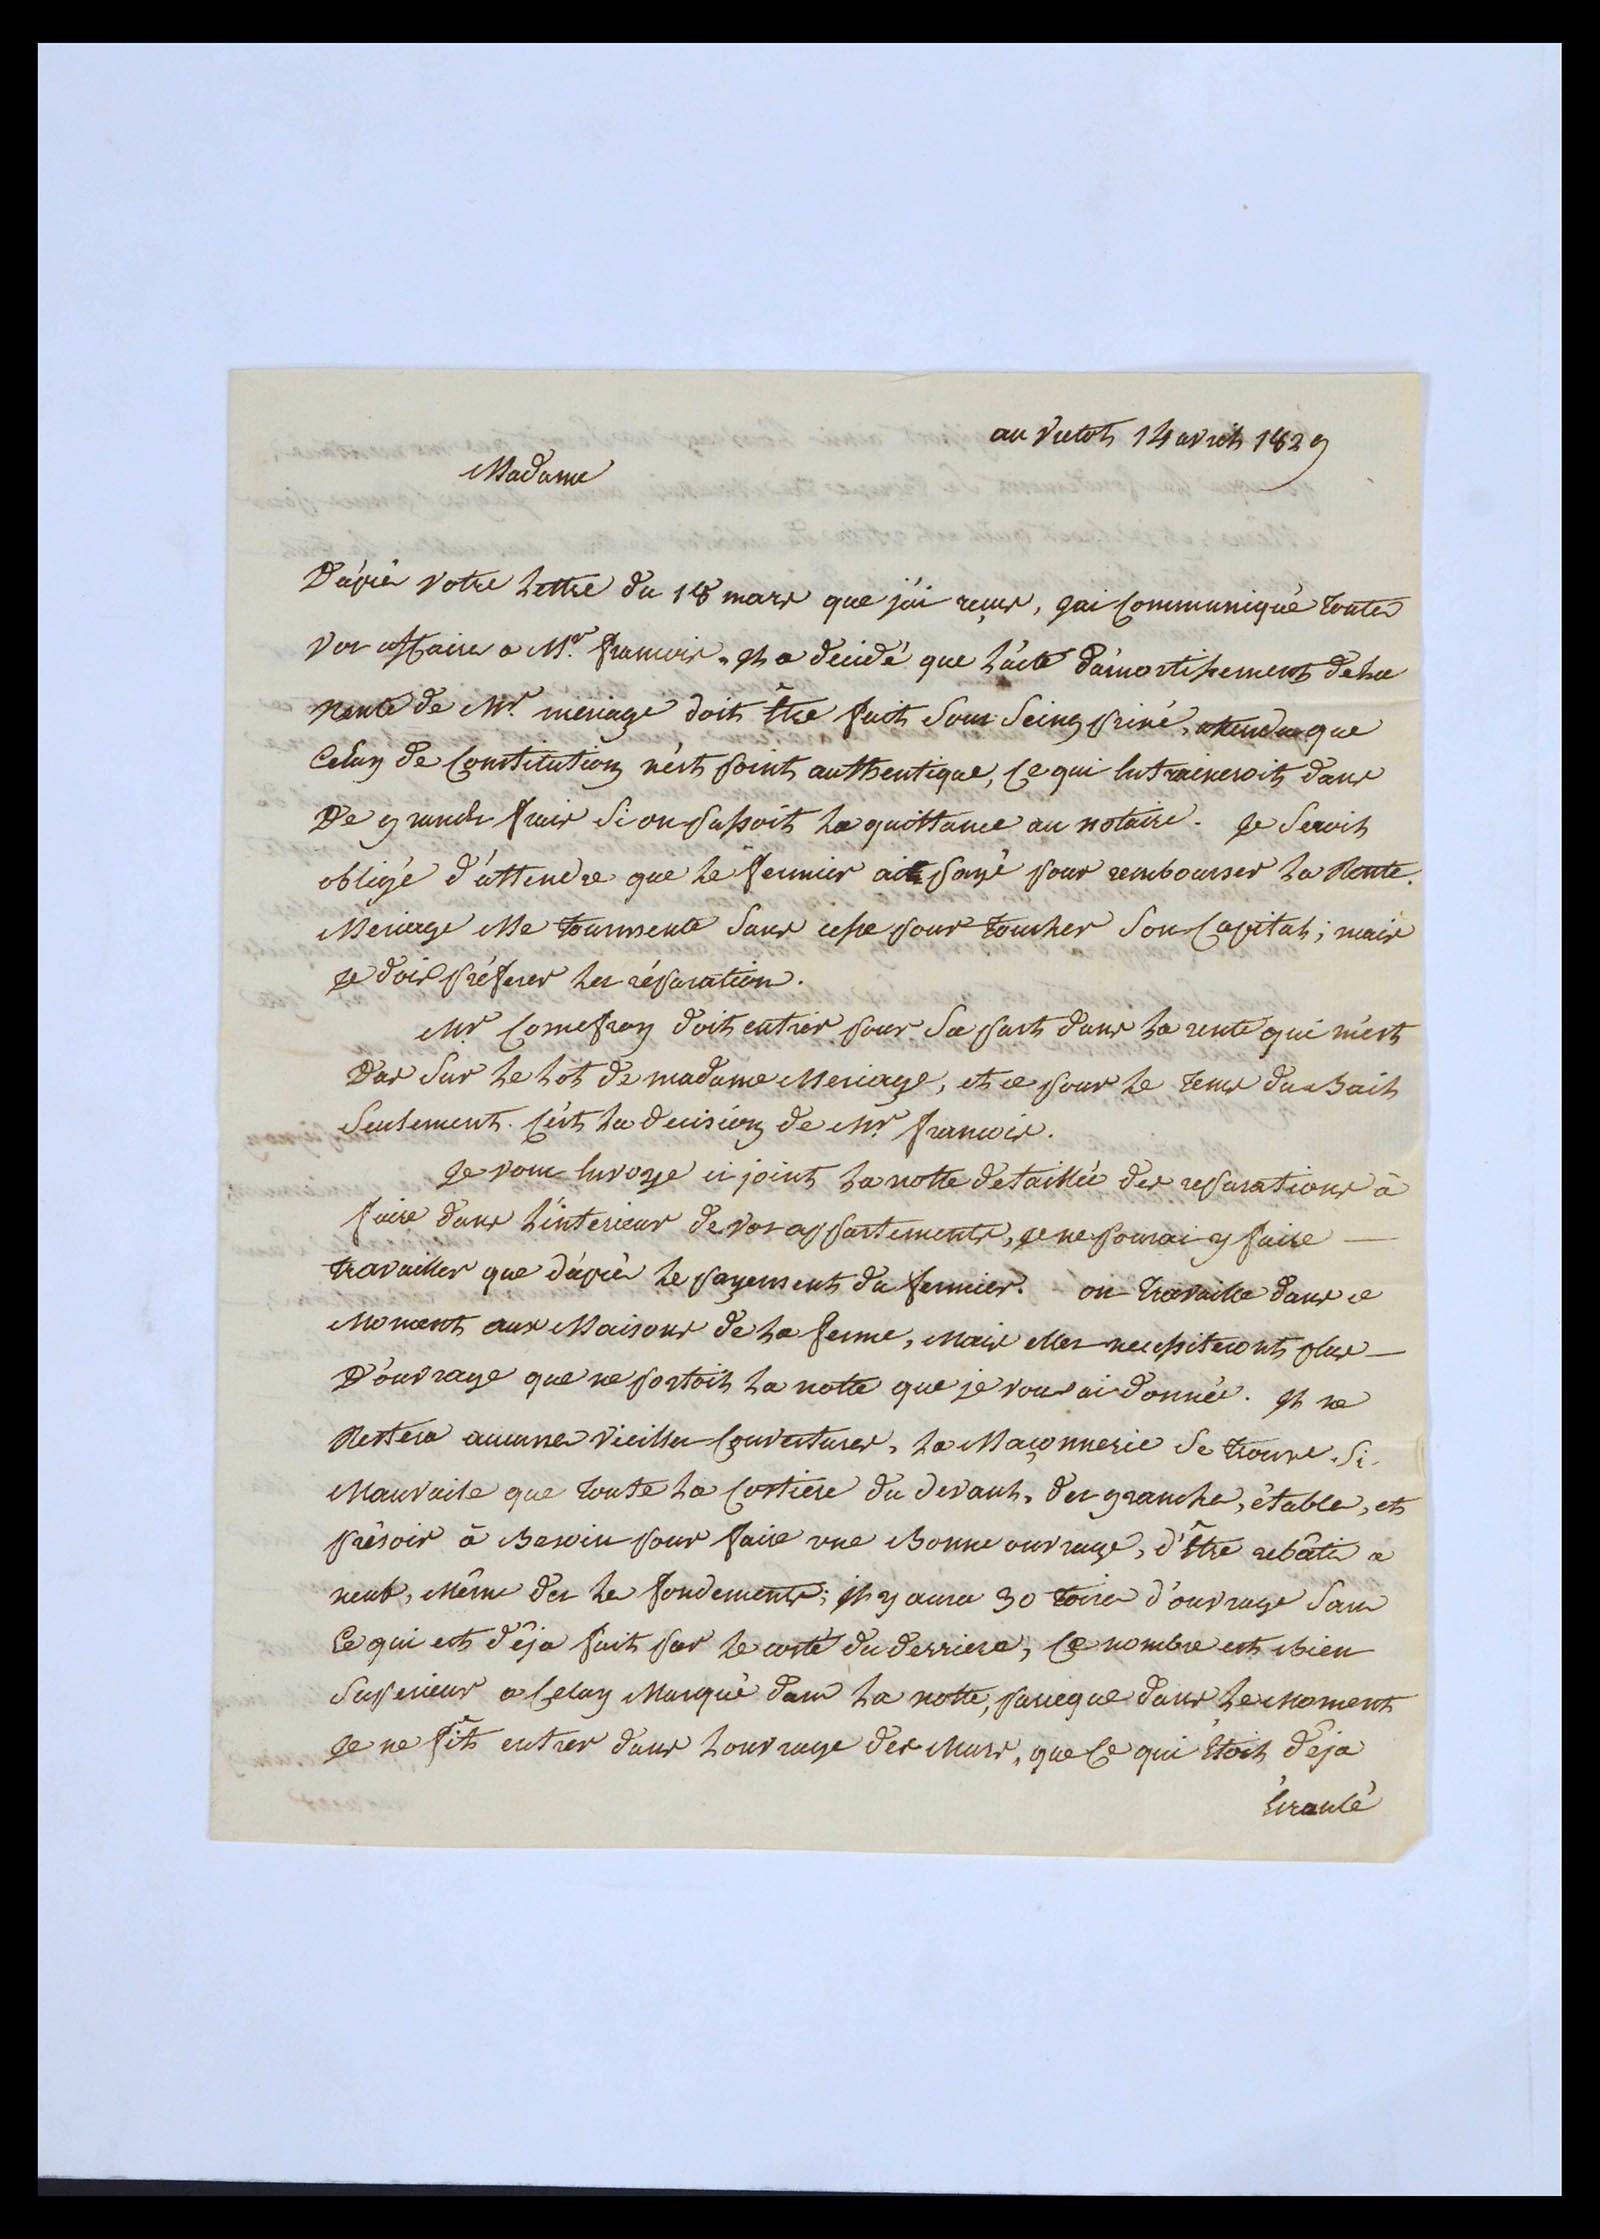 au Vutot 14 avril 1829
Madame
D'áprès votre lettre du 18 mars que j'ai reçus, j'ai Communiqué toutes
Vos affaires a Mr. francois. Il a decidé que l'acte d'amortissement de la
Rente de Mr. meriage doit être fait sous Seing privé, attendu que
Celuy de Constitution n'est point authentique, Ce qui Entraineroit dans
De grands frais Si on passoit la quittance au notaire. Je Serois
obligé d'attendre que le fermier ait payé pour rembourser la Rente.
Meriage Me tourmente Sans cesse pour toucher Son Capital; mais
Je dois préferer les réparation.
Mr. Comefroy doit entrer pour Sa part dans la rente qui m'est
Due Sur le lot de madame Meriage, et ce pour le tems du Bail
Seulement. C'est la decision de Mr. francois.
Je vous Envoye ci joint la notte detaillée des reparations à
faire dans l'interieur de vos appartements, Je ne pourai y faire —
travailler que d'après le payement du fermier. on travaille dans ce
Moment aux Maisons de la ferme, Mais elles necessiteront plus —
D'óuvrage que ne portoit la notte que je vous ai donnée. Il ne
Restera aucunes vieilles Couvertures, la Maçonnerie Se trouve Si
Mauvaise que toute la Costiere du devant, des granche, étable, et
présoir à Besoin pour faire une Bonne ouvrage, d'être rebâtis a
neuf, Même des le fondements; Il y aura 30 toises d'ouvrage Sans
Ce qui est déja fait par le costé du derriere, Ce nombre est Bien
Superieur a Celuy Marqué dans la notte, parceque dans le Moment
Je ne fit entrer dans l'ouvrage des Murs, que Ce qui Étoit déja
Écroulé